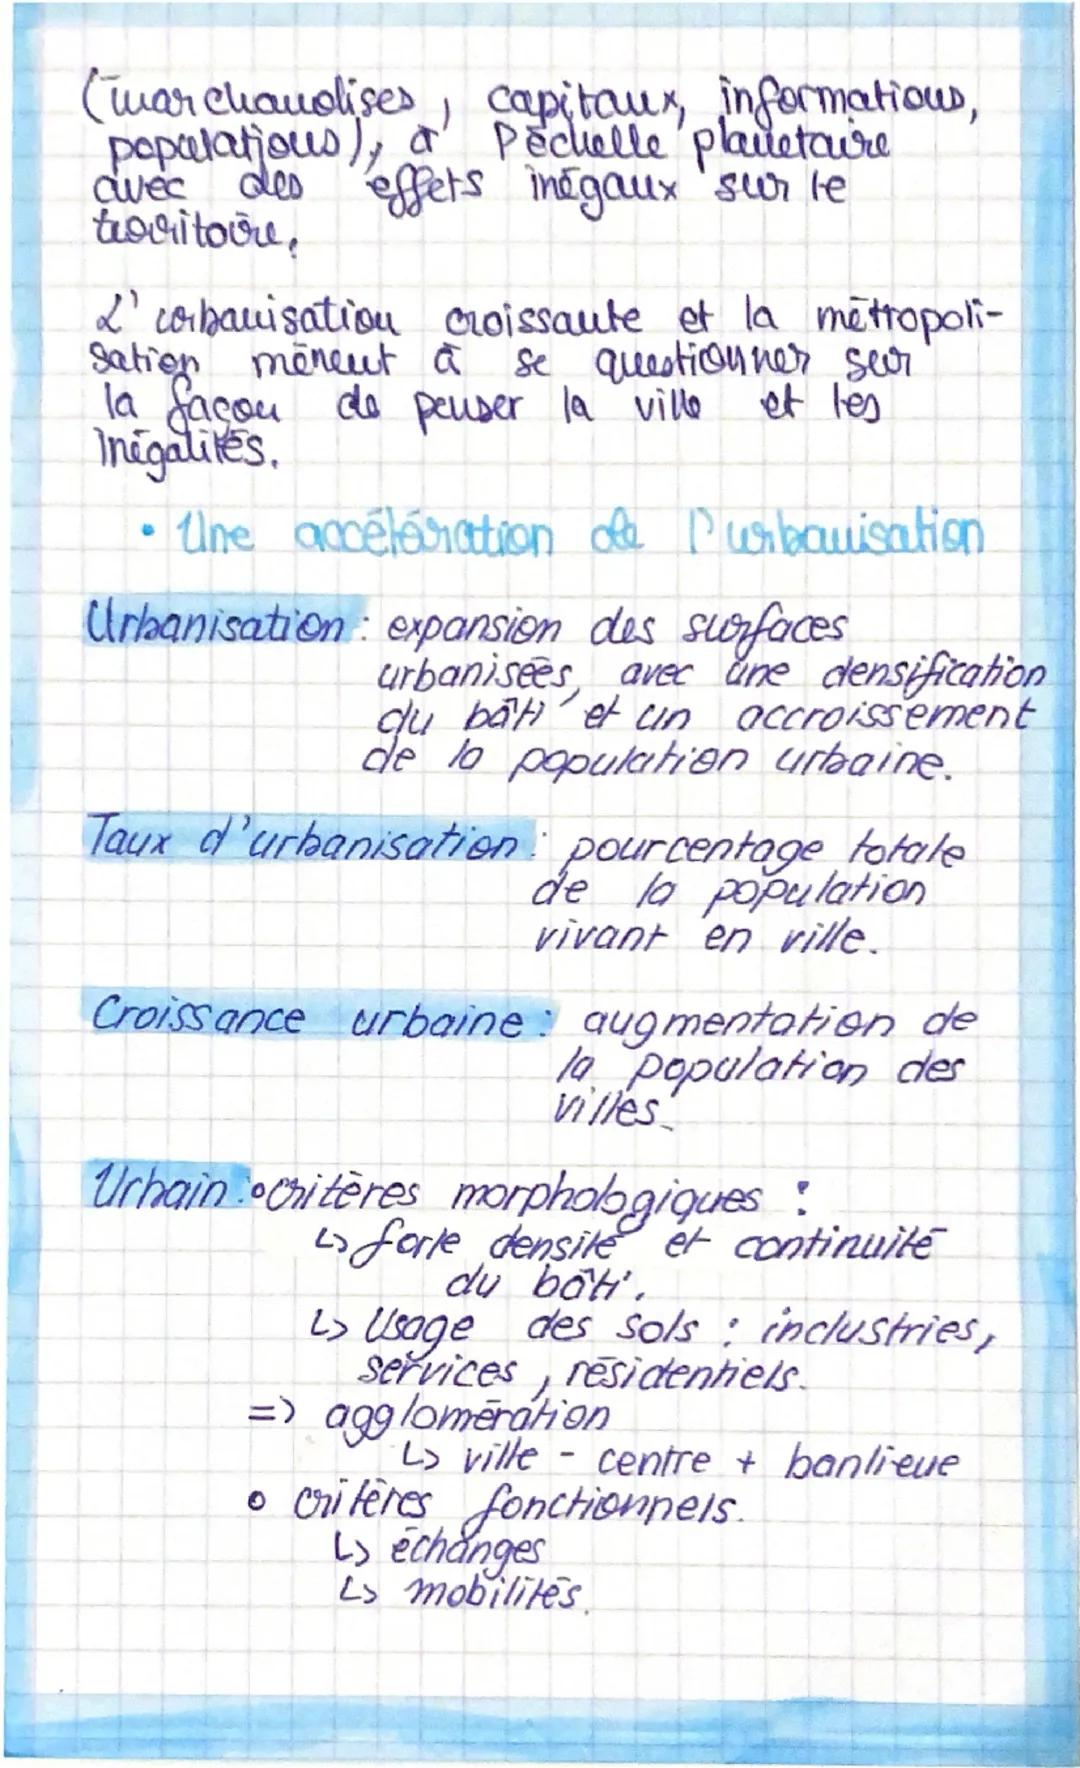 (marchandises, capitaux, informations,
populations), à l'échelle planétaire
avec des effets inégaux sur le
territoire.
L'urbanisation croissante et la métropoli-
sation mènent à se questionner sur
la façon de penser la ville et les
inégalités.
• Une accélération de l'urbanisation
Urbanisation : expansion des surfaces
urbanisées, avec une densification
du bâti et un accroissement
de la population urbaine.
Taux d'urbanisation : pourcentage totale
de la population
vivant en ville.
Croissance urbaine : augmentation de
la population des
villes.
Urbain : • critères morphologiques :
↳ forte densité et continuité
du bâti.
↳ Usage des sols : industries,
services, résidentiels.
=> agglomération
↳ ville - centre + banlieue
• critères fonctionnels.
↳ échanges
↳ mobilités.